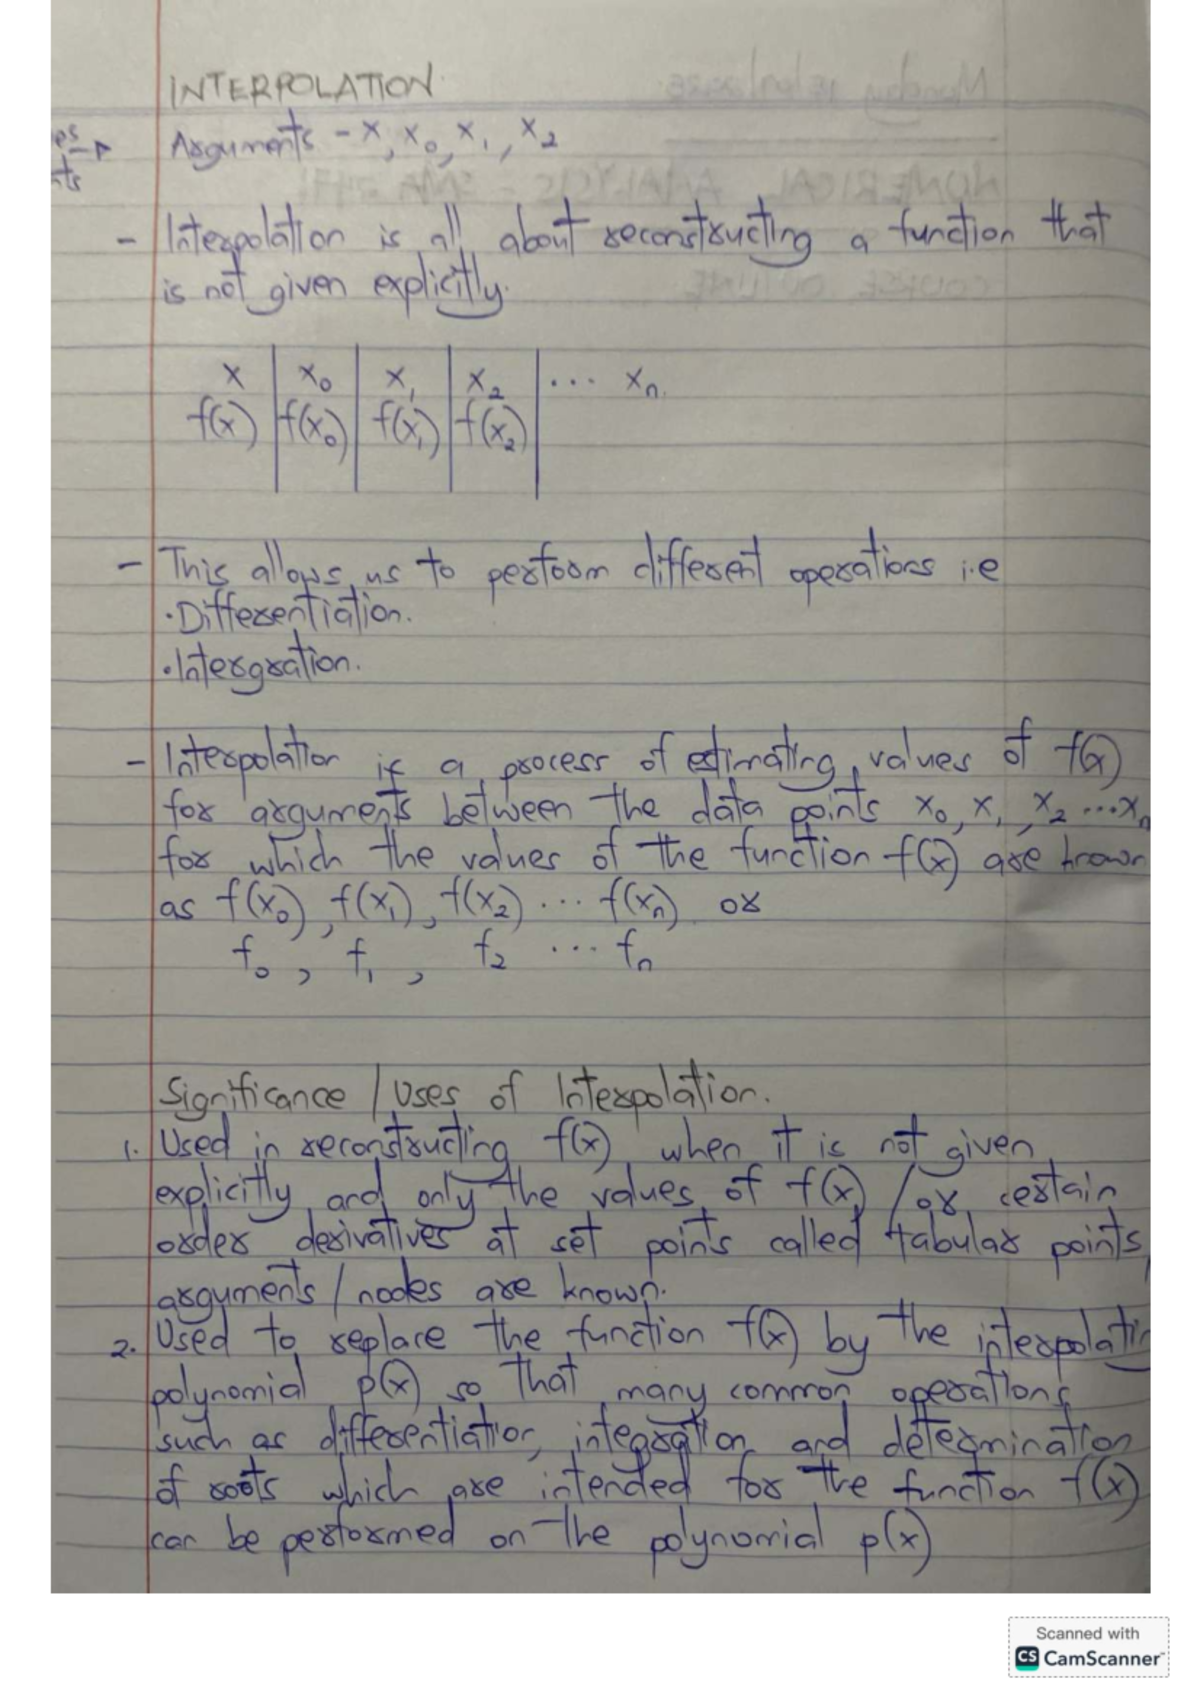 INTERPOLATION
Arguments - x, x₀, x₁, x₂
- Interpolation is all about reconstructing a function that
is not given explicitly.
x | x₀ | x₁ | x₂ | ... xₙ
f(x) | f(x₀) | f(x₁) | f(x₂) |
- This allows us to perform different operations i.e
• Differentiation.
• Intergration.
- Interpolation is a process of estimating values of f(x)
for arguments between the data points x₀, x₁, x₂ ... xₙ
for which the values of the function f(x) are known
as f(x₀), f(x₁), f(x₂) ... f(xₙ) or
f₀, f₁, f₂ ... fₙ
Significance / Uses of Interpolation.
1. Used in reconstructing f(x) when it is not given
explicitly and only the values of f(x) / or certain
order derivatives at set points called tabular points,
arguments / nodes are known.
2. Used to replace the function f(x) by the interpolatin
polynomial p(x) so that many common operations
such as differentiation, integration and determination
of roots which are intended for the function f(x)
can be performed on the polynomial p(x)
Scanned with
CS CamScanner